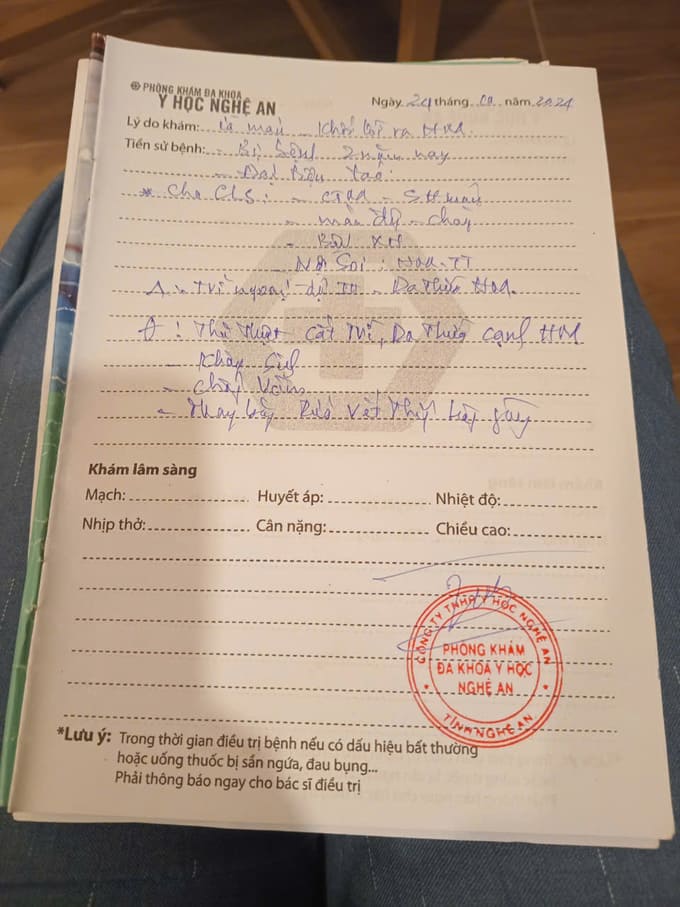 PHÒNG KHÁM ĐA KHOA
Y HỌC NGHỆ AN
Ngày 24 tháng năm 2024
Lý do khám: ỉa máu - Khối lồi ra HM.
Tiền sử bệnh: - Bị bệnh 2 năm nay
- Đại tiện táo.
* Cho CLS: - - SH máu
- máu - chảy
- XN
- Nội Soi: HM-TT
- Trĩ ngoại - - Da thừa HM.
! Thủ thuật cắt Trĩ, Da Thừa cạnh HM
- Kháng Sinh
- Chống Viêm
- Thay băng Rửa Vết Thương hàng ngày
Khám lâm sàng
Mạch: Huyết áp: Nhiệt độ:
Nhịp thở: Cân nặng: Chiều cao:
CÔNG TY TNHH Y HỌC NGHỆ AN
PHÒNG KHÁM
ĐA KHOA Y HỌC
NGHỆ AN
TỈNH NGHỆ AN
*Lưu ý: Trong thời gian điều trị bệnh nếu có dấu hiệu bất thường
hoặc uống thuốc bị sẩn ngứa, đau bụng...
Phải thông báo ngay cho bác sĩ điều trị